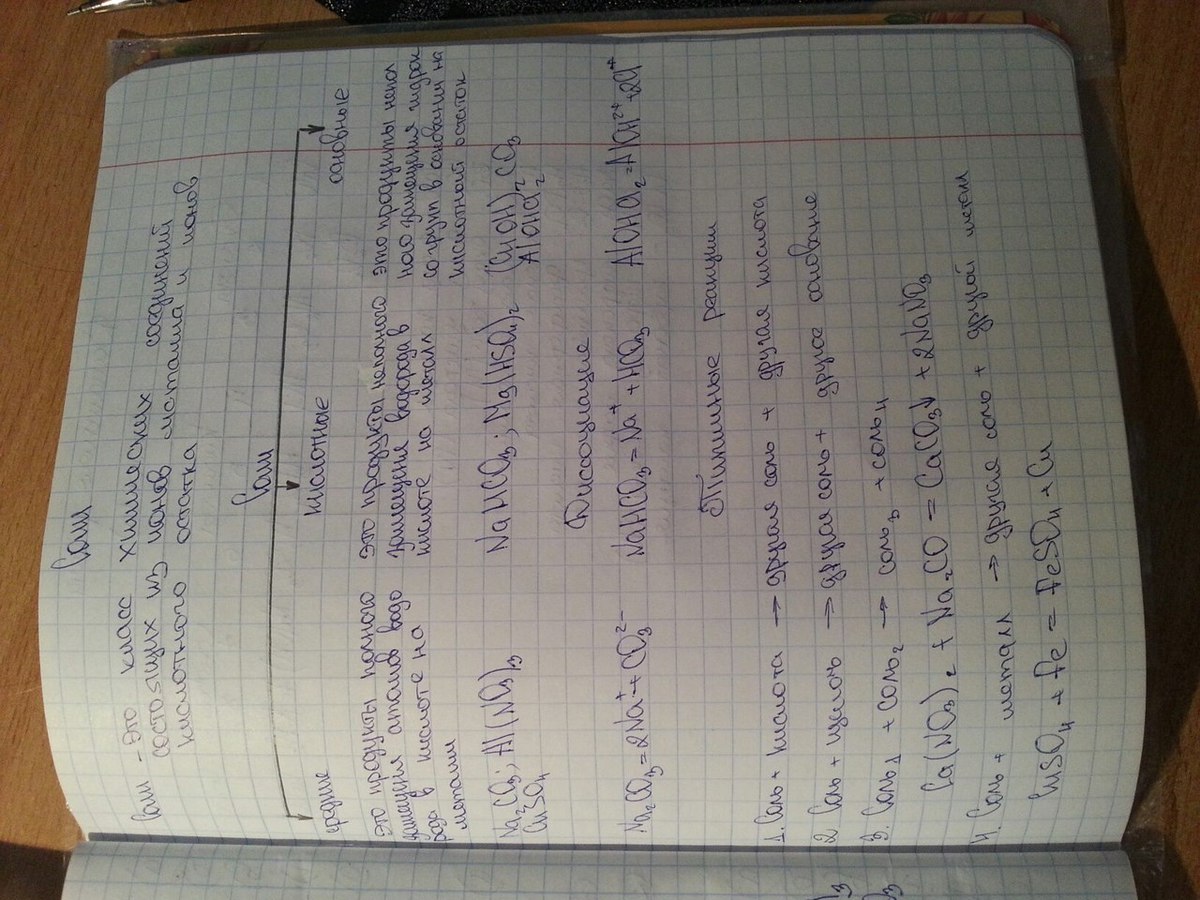 Соли
Соли - это класс химических соединений
состоящих из ионов металла и ионов
кислотного остатка
Соли
средние
кислотные
основные
это продукты полного
замещения атомов водо
рода в кислоте на
металл
это продукты неполного
замещения водорода в
кислоте на металл
это продукты непол
ного замещения гидрок
со групп в основании на
кислотный остаток
Na₂CO₃; Al(NO₃)₃
CuSO₄
NaHCO₃; Mg(HSO₄)₂
(CuOH)₂CO₃
AlOHCl₂
Диссоциация
Na₂CO₃=2Na⁺+CO₃²⁻
NaHCO₃=Na⁺+HCO₃
AlOHCl₂=AlOH²⁺+2Cl⁺
Типичные реакции
1. Соль + кислота → другая соль + другая кислота
2 Соль + щелочь → другая соль + другое основание
3. Соль₁ + соль₂ → соль₃ + соль₄
Ca(NO₃)₂ + Na₂CO = CaCO₃↓ + 2NaNO₃
4. Соль + металл → другая соль + другой металл
CuSO₄ + Fe = FeSO₄ + Cu